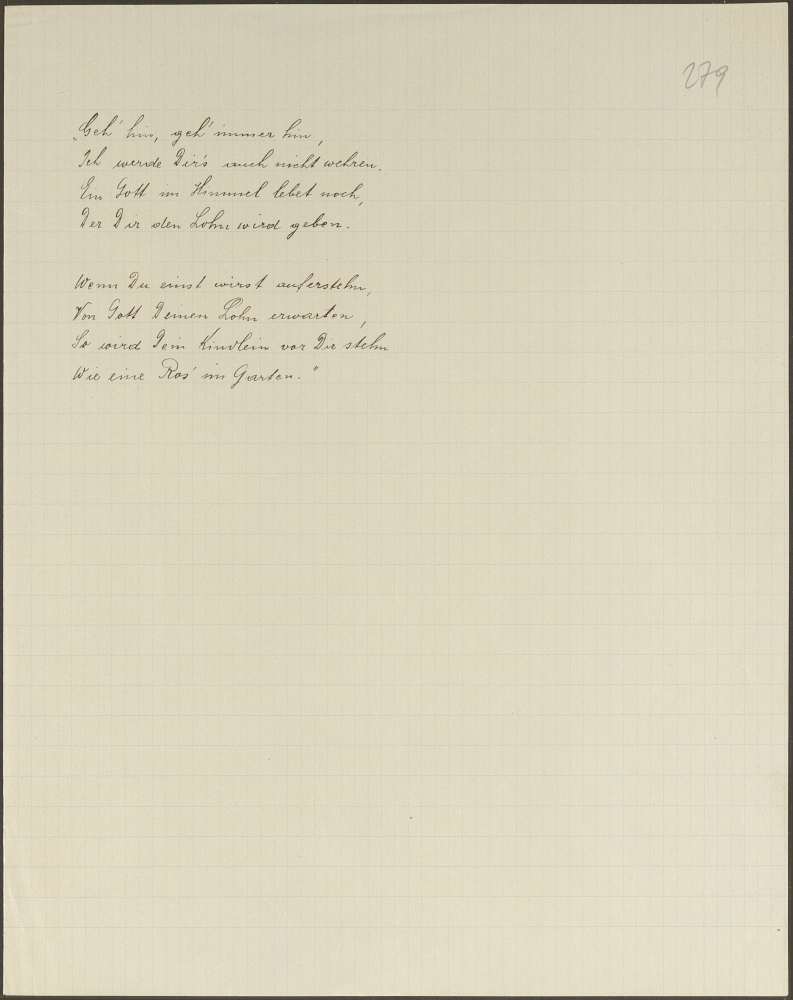 279
„Geh' hin, geh' immer hin,
Ich werde Dir's auch nicht wehren.
Ein Gott im Himmel lebet noch,
Der Dir den Lohn wird geben.
Wenn Du einst wirst auferstehn,
Von Gott Deinen Lohn erwarten,
So wird Dein Kindlein vor Dir stehn
Wie eine Ros' im Garten."